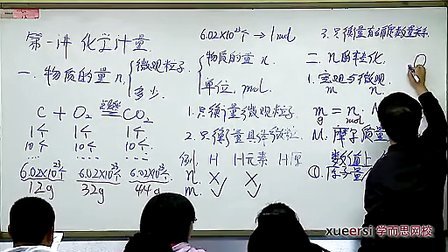 第一讲 化学计量
一.物质的量 n.
微观粒子
多少.
C + O₂ 点燃 CO₂
1个 1个 1个
10个 10个 10个
6.02×10²³个 6.02×10²³个 6.02×10²³个
12g 32g 44g
6.02×10²³个→1mol
物质的量 n.
单位, mol.
1.只衡量微观粒子.
2.只衡量具体微粒.
例. H H元素 H原
n. × ✓
m. × ✓
二.n的转化.
1.宏观与微观.
m n
m = n· M
g mol
M. 摩尔质量
数值上
xueersi 学而思网校